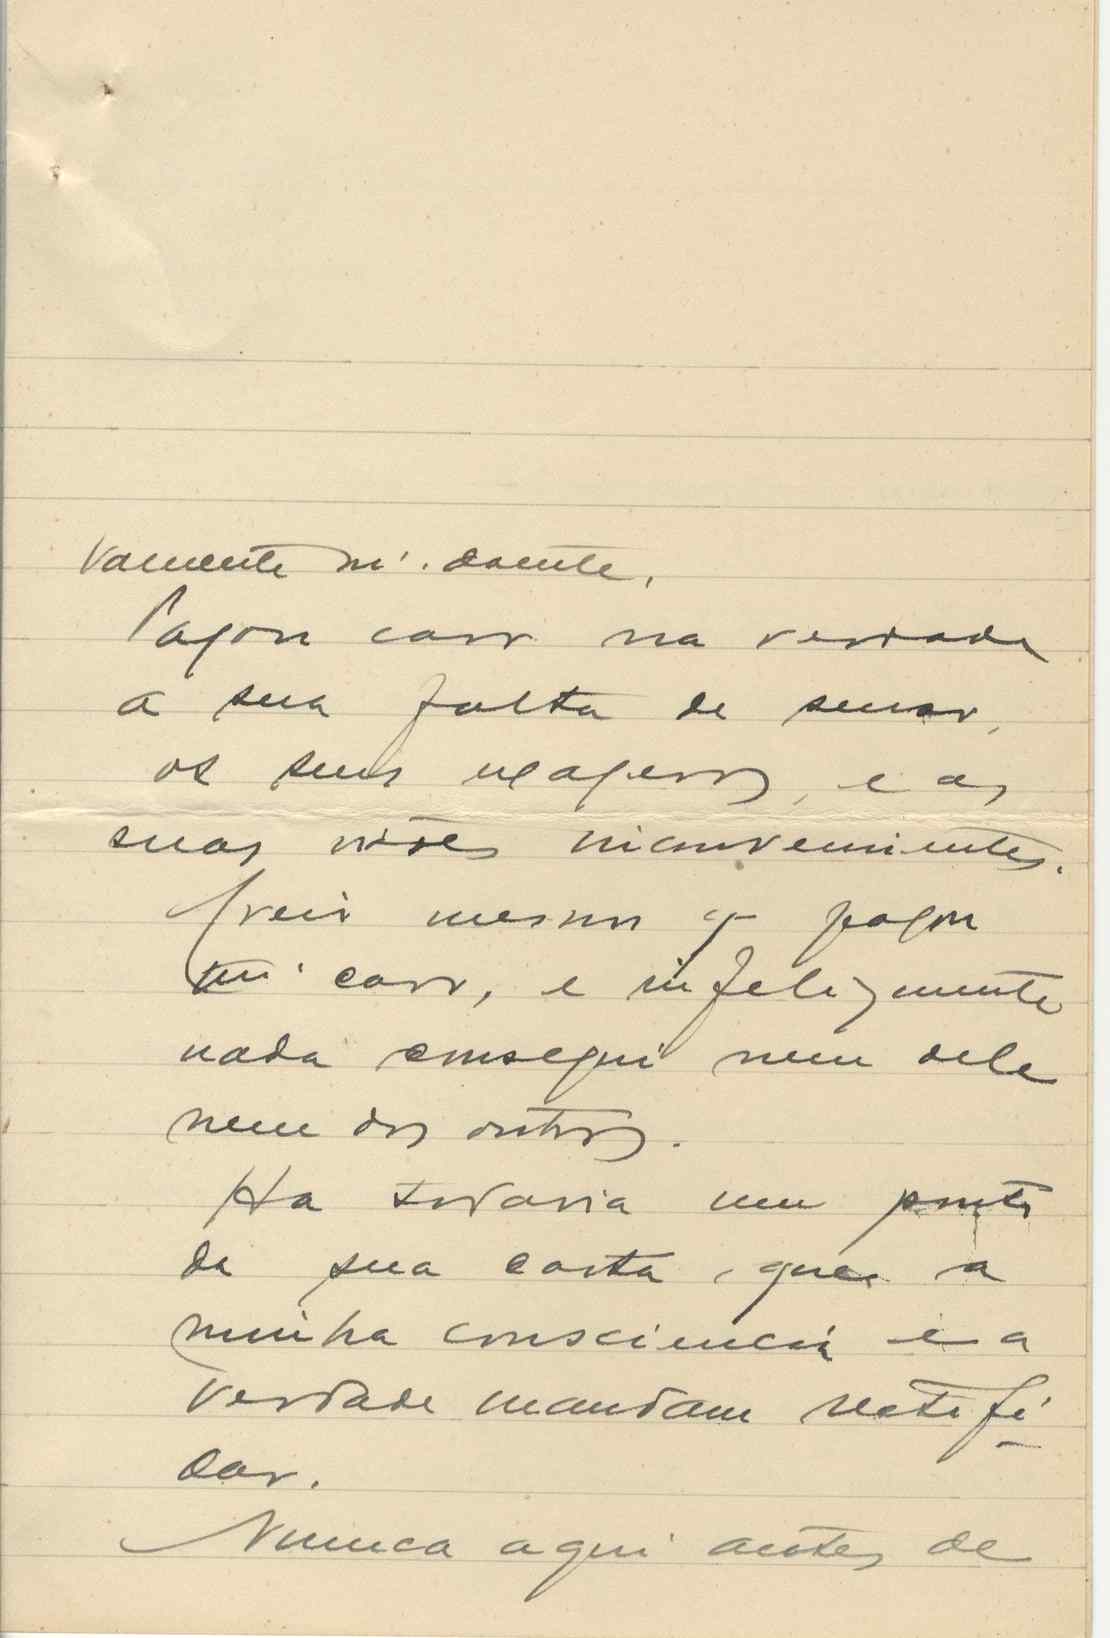 vamente mt. doente.
Pagou caro na verdade
a sua falta de senso,
os seus exageros, e as
suas visões inconvenientes.
Creia mesmo q pagou
mt. caro, e infelizmente
nada consegui nem dele
nem dos outros.
Ha todavia um ponto
da sua carta, que a
minha consciencia e a
verdade mandam retifi-
car.
Nunca aqui antes de